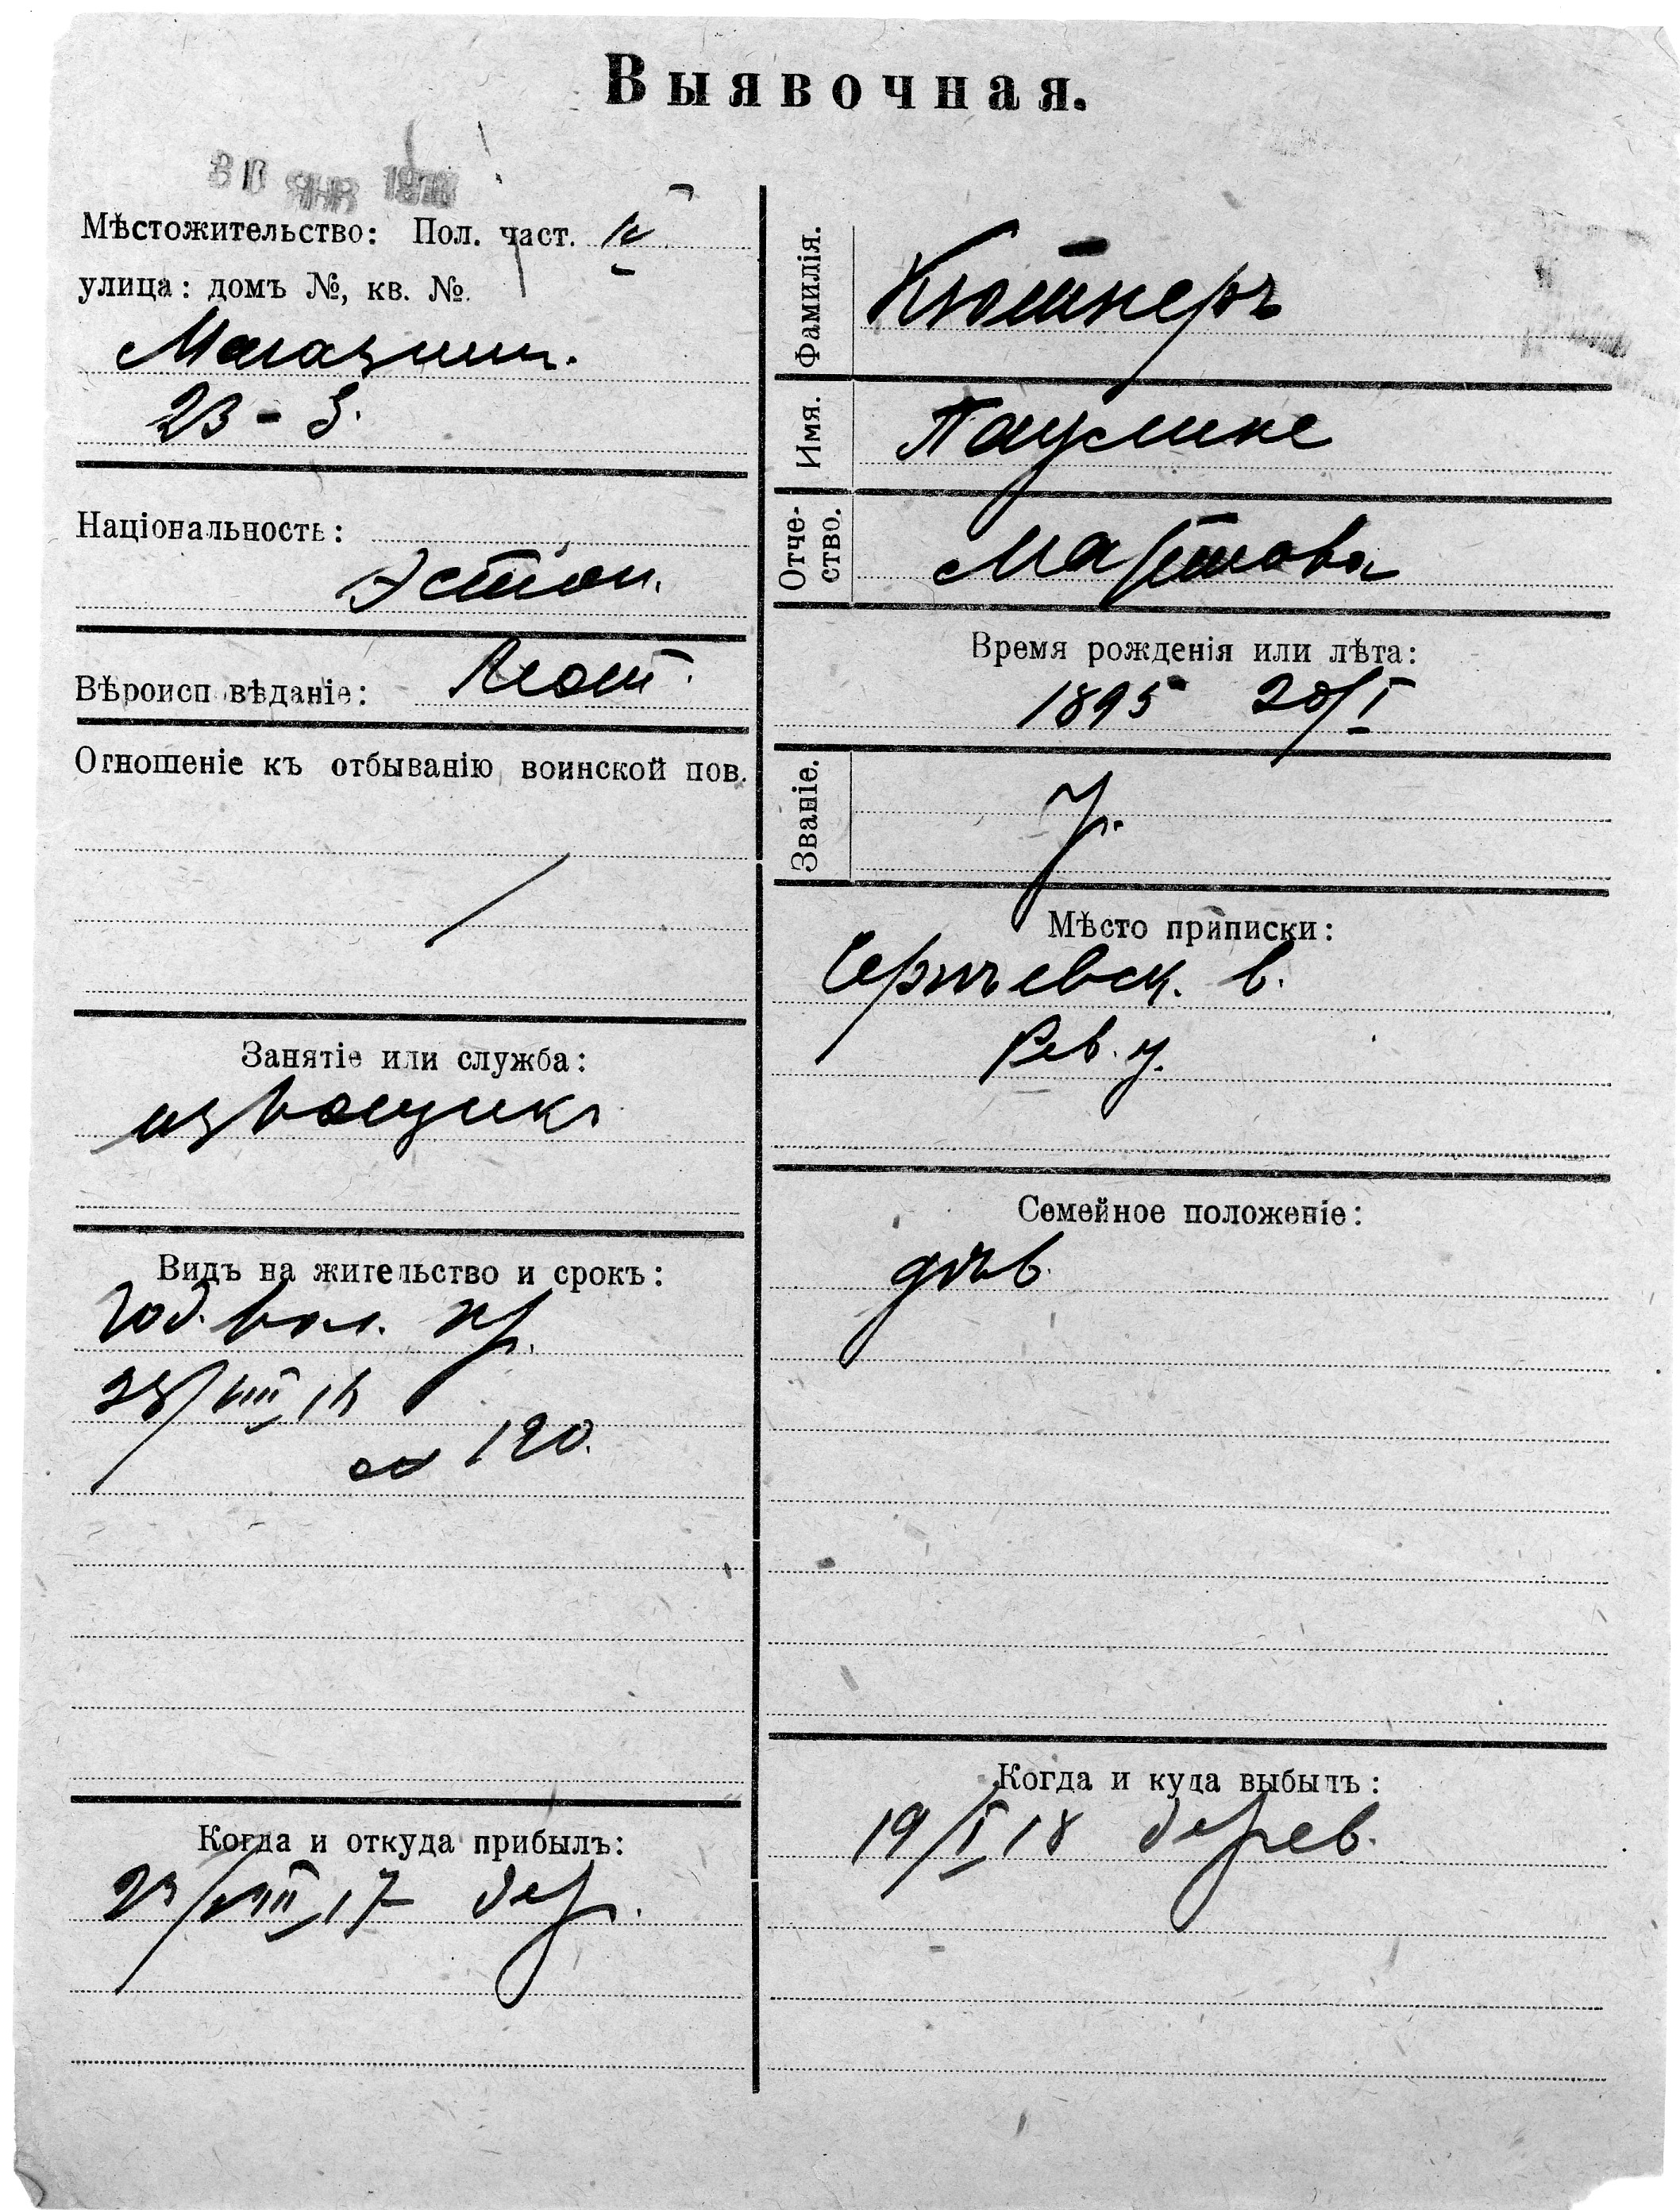 Выявочная.
30 ЯНВ 1918
Мѣстожительство: Пол. част. IV
улица: домъ №, кв. №
Магазинн.
23 - 3.
Національность:
Эстон.
Вѣроисповѣданіе: Лют.
Отношеніе къ отбыванію воинской пов.
Занятіе или служба:
извощикъ
Видъ на жительство и срокъ:
Год. вол. пр.
/VIII 16
120.
Когда и откуда прибылъ:
23/VIII 17 дер.
Фамилія. Кютнеръ
Имя. Паулине
Отче-
ство. Мартова
Время рожденія или лѣта:
1895 20/I
Званіе.
Мѣсто приписки:
в.
Рев. у.
Семейное положеніе:
дѣв.
Когда и куда выбылъ:
19/I 18 дерев.